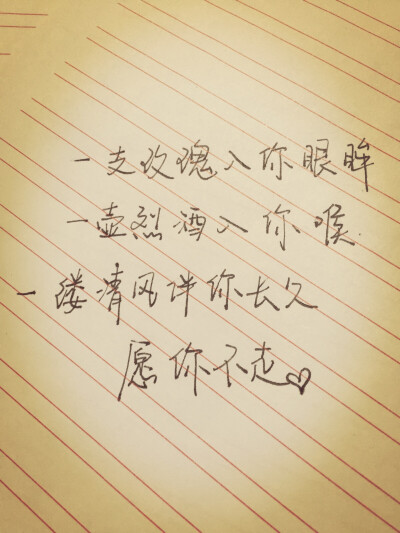 一支玫瑰入你眼眸
一壶烈酒入你喉.
一缕清风伴你长久
愿你不走♡